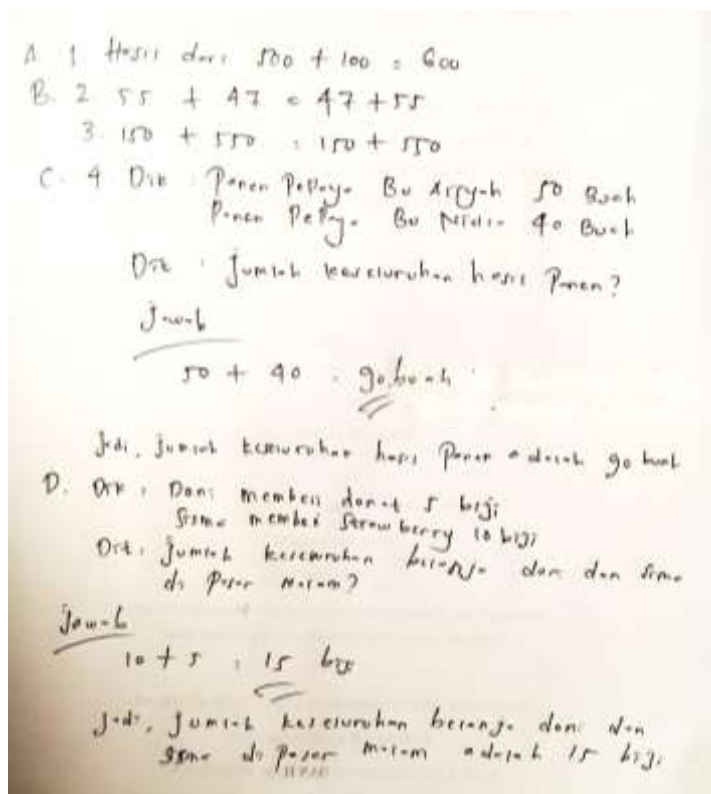 A. 1. Hasil dari 500 + 100 = 600
B. 2. 55 + 47 = 47 + 55
3. 150 + 550 = 150 + 550
C. 4. Dik : Panen Pepaya Bu Aisyah 50 Buah
Panen Pepaya Bu Nidia 40 Buah
Dit : Jumlah keseluruhan hasil Panen?
Jawab
50 + 40 = 90 buah
Jadi, jumlah keseluruhan hasil Panen adalah 90 buah
D. Dik : Doni membeli donat 5 biji
Sisma membeli Strawberry 10 biji
Dit : Jumlah keseluruhan belanja doni dan Sisma
di Pasar Malam?
Jawab
10 + 5 = 15 biji
Jadi, Jumlah keseluruhan belanja doni dan
Sisma di pasar malam adalah 15 biji